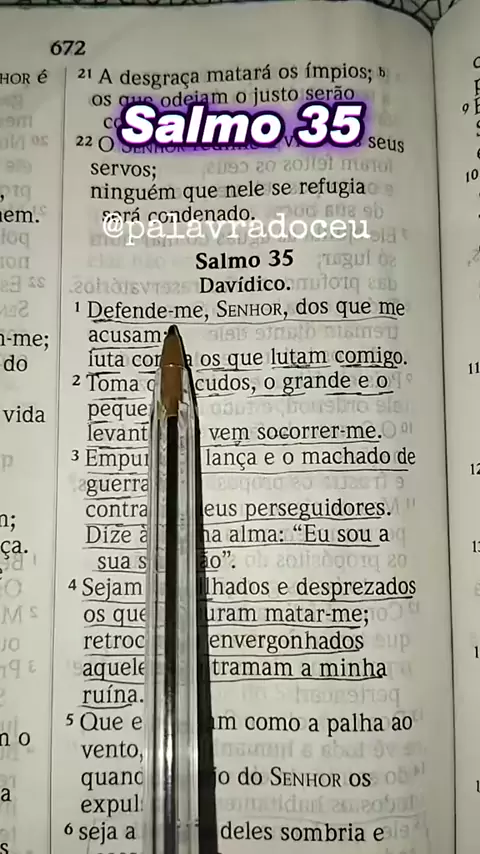 672
HOR é
21 A desgraça matará os ímpios; b
os que odeiam o justo serão
Salmo 35
22 O SENHOR seus
servos;
ninguém que nele se refugia
será condenado.
@palavradoceu
Salmo 35
Davídico.
1 Defende-me, SENHOR, dos que me
acusam;
luta os que lutam comigo.
2 Toma cudos, o grande e o
peque
levant vem socorrer-me.
3 Empu lança e o machado de
guerra
contra eus perseguidores.
Dize à ha alma: “Eu sou a
sua s ão”.
4 Sejam lhados e desprezados
os que uram matar-me;
retroc envergonhados
aquele tramam a minha
ruína.
5 Que e am como a palha ao
vento,
quand jo do SENHOR os
expul
6 seja a deles sombria e
nem.
n-me;
do
vida
n;
ça.
n o
a
s
9
10
11
12
13